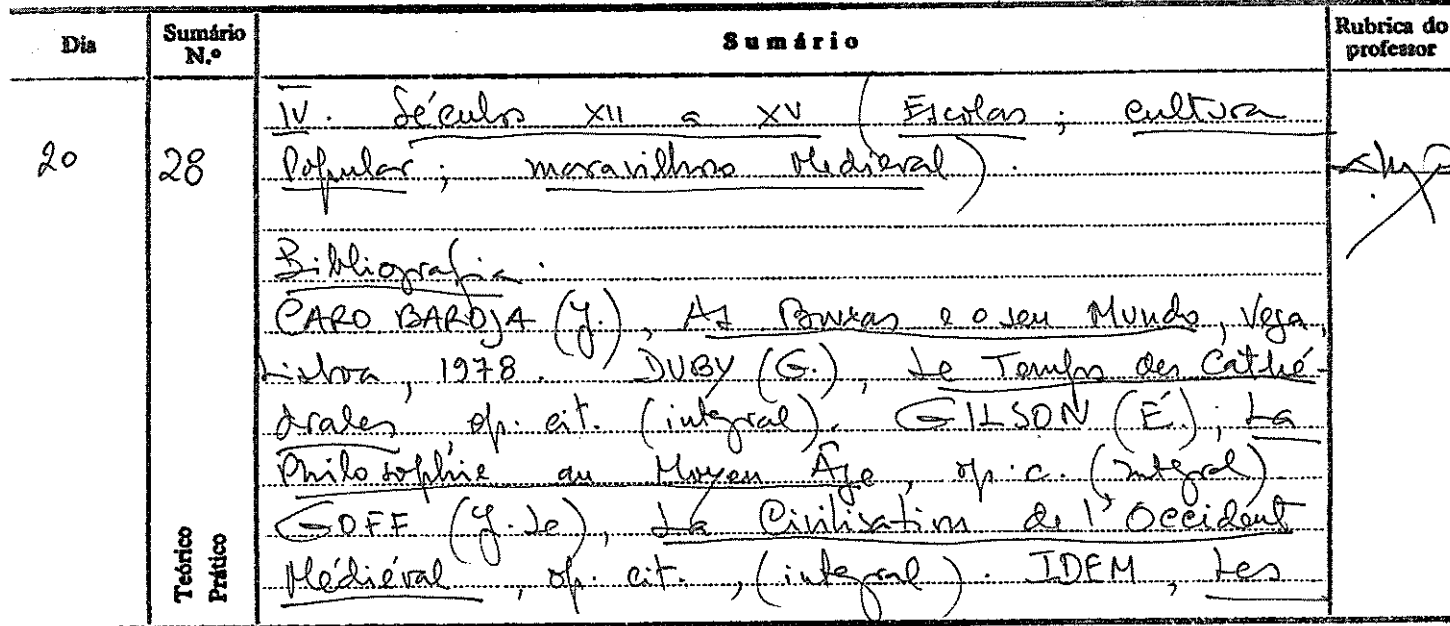 Dia
Sumário N.º
Sumário
Rubrica do professor
20
28
IV. Séculos XII a XV (Escolas; Cultura
Popular; maravilhoso Medieval).
Bibliografia.
CARO BAROJA (J.), As Bruxas e o seu Mundo, Vega,
Lisboa, 1978. DUBY (G.), Le Temps des Cathé-
drales, op. cit. (integral). GILSON (É.), La
Philosophie au Moyen Âge, op. c. (integral)
GOFF (J. Le), La Civilisation de l'Occident
Médiéval, op. cit., (integral). IDEM, Les
Teórico
Prático